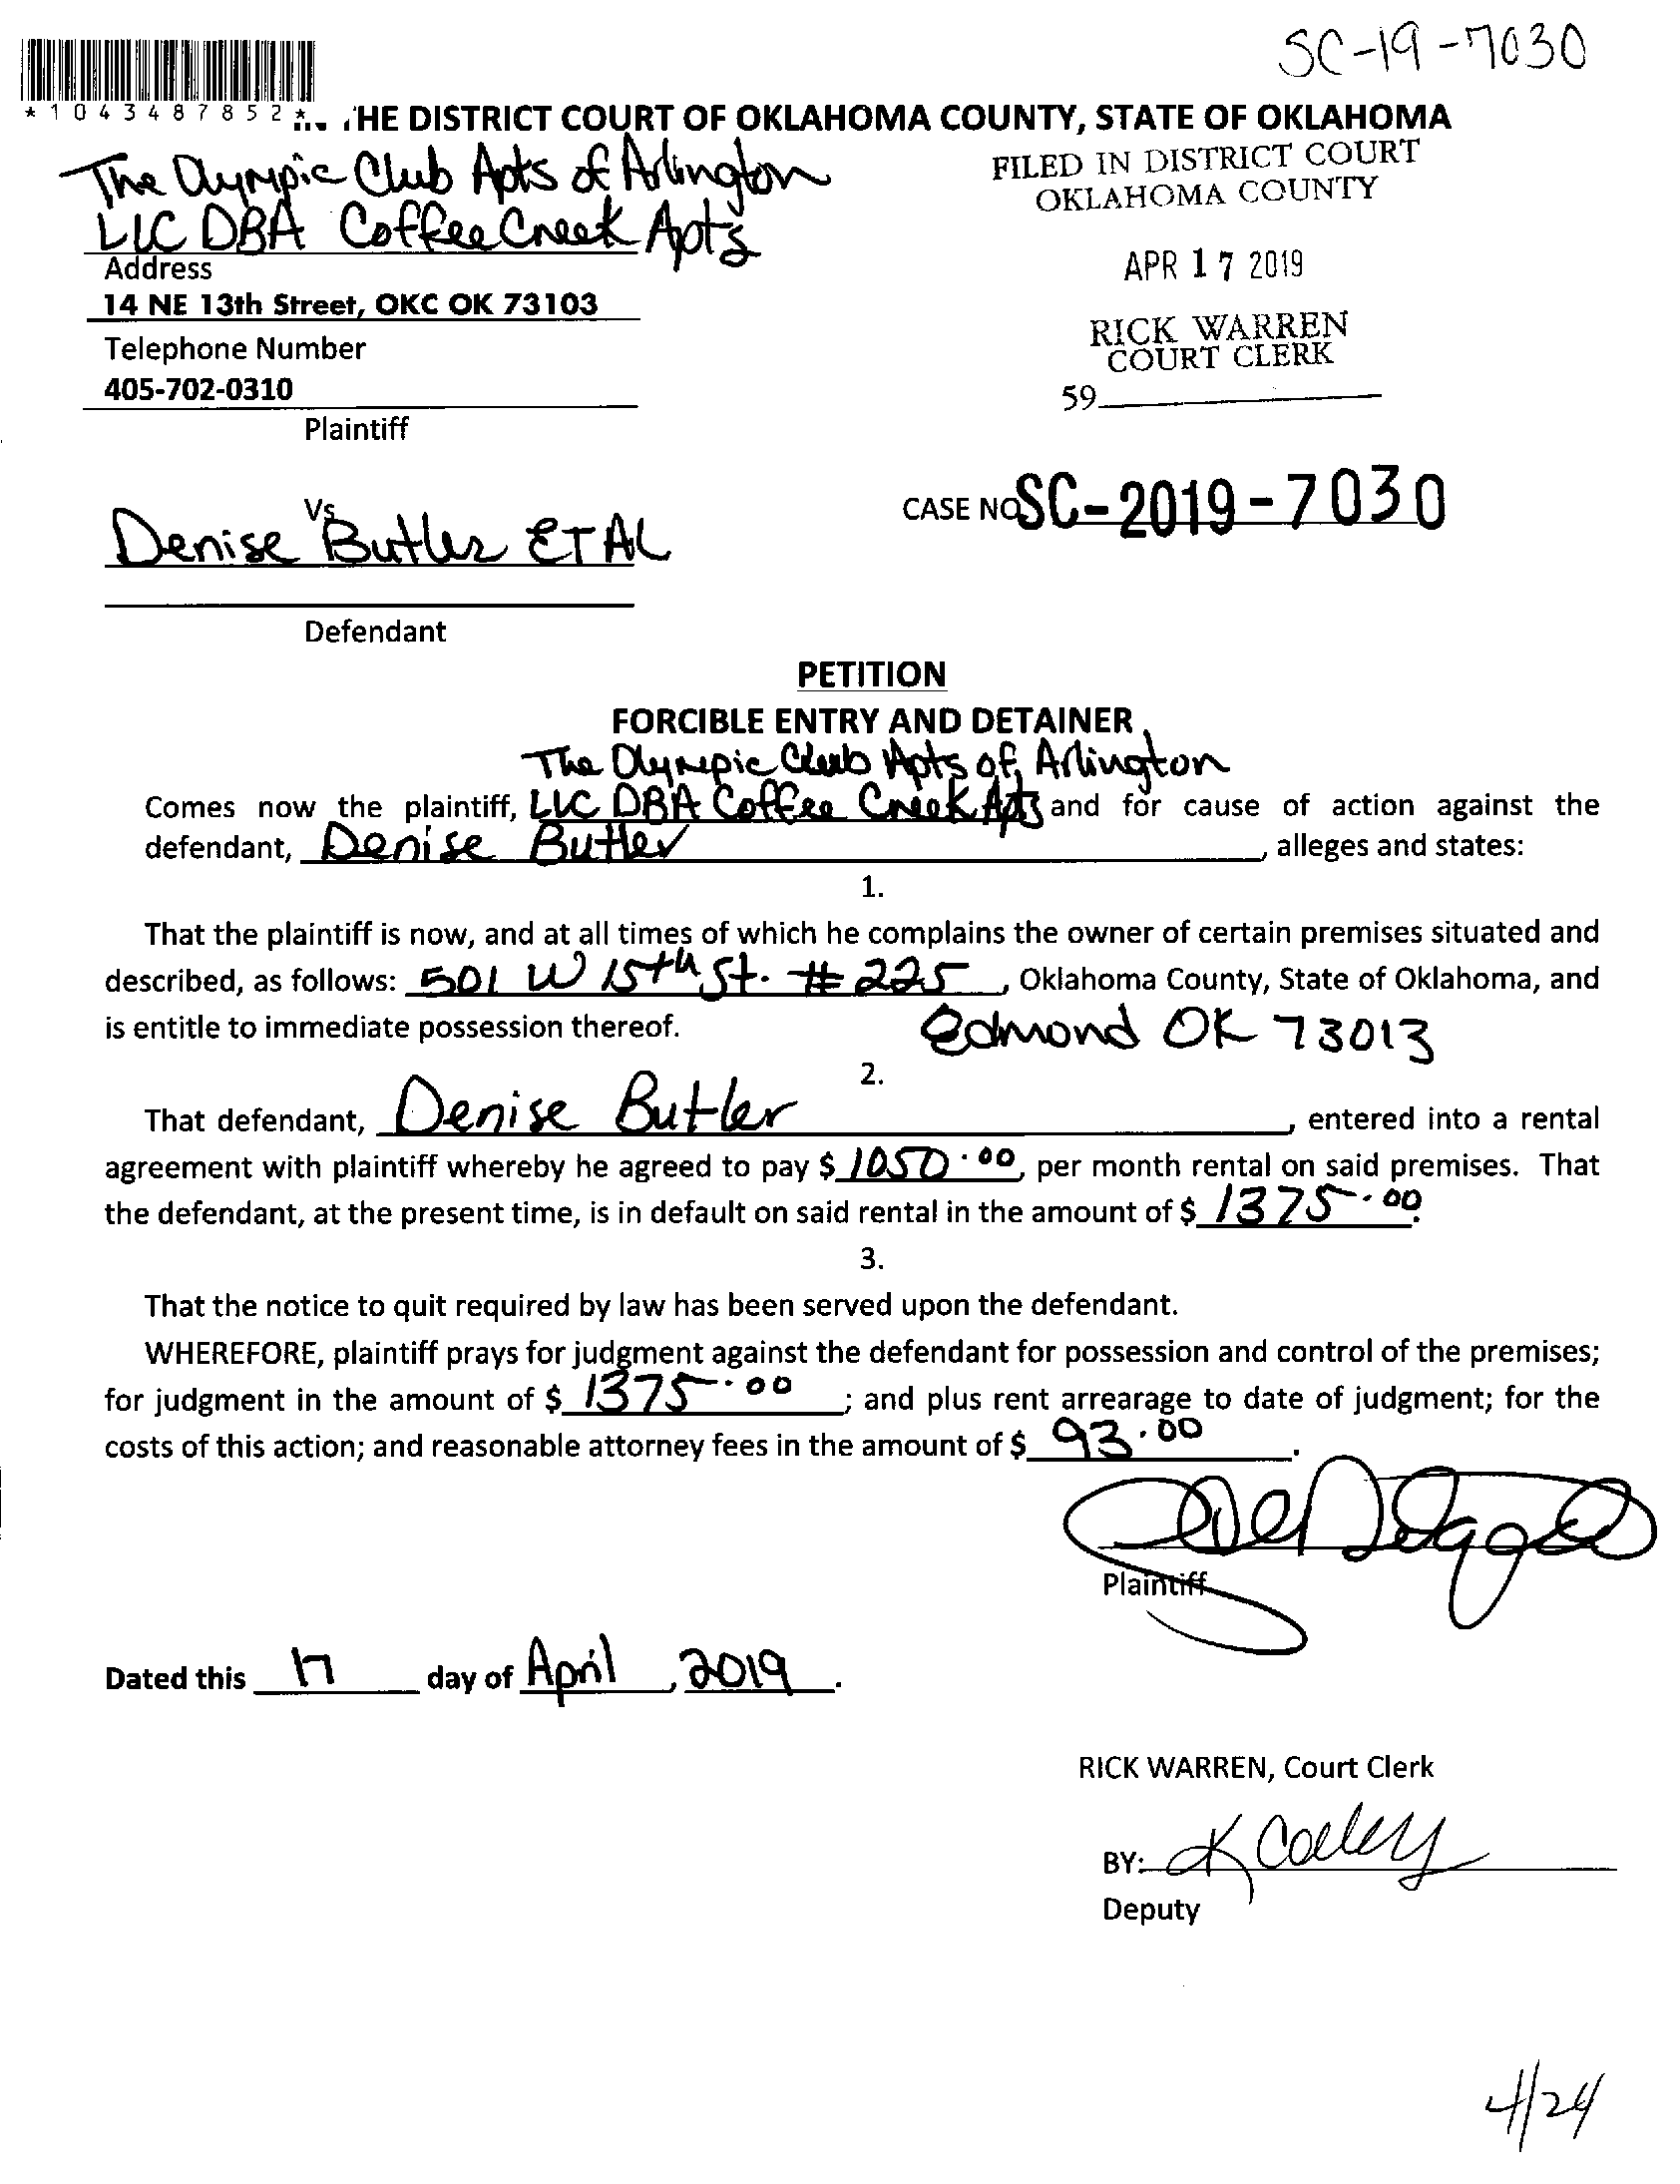 SC-19-7030
*1043487852*
THE DISTRICT COURT OF OKLAHOMA COUNTY, STATE OF OKLAHOMA
The Olympic Club Apts of Arlington
LLC DBA Coffee Creek Apts
FILED IN DISTRICT COURT
OKLAHOMA COUNTY
Address
APR 17 2019
14 NE 13th Street, OKC OK 73103
RICK WARREN
COURT CLERK
Telephone Number
405-702-0310
59
Plaintiff
Vs
CASE NO SC-2019-7030
Denise Butler ET AL
Defendant
PETITION
FORCIBLE ENTRY AND DETAINER
The Olympic Club Apts of Arlington
Comes now the plaintiff, LLC DBA Coffee Creek Apts and for cause of action against the
defendant, Denise Butler, alleges and states:
1.
That the plaintiff is now, and at all times of which he complains the owner of certain premises situated and
described, as follows: 501 W 15th St. #225, Oklahoma County, State of Oklahoma, and
is entitle to immediate possession thereof. Edmond OK 73013
2.
That defendant, Denise Butler, entered into a rental
agreement with plaintiff whereby he agreed to pay $ 1050.00, per month rental on said premises. That
the defendant, at the present time, is in default on said rental in the amount of $ 1375.00.
3.
That the notice to quit required by law has been served upon the defendant.
WHEREFORE, plaintiff prays for judgment against the defendant for possession and control of the premises;
for judgment in the amount of $ 1375.00; and plus rent arrearage to date of judgment; for the
costs of this action; and reasonable attorney fees in the amount of $ 93.00.
Plaintiff
Dated this 17 day of April, 2019.
RICK WARREN, Court Clerk
BY:
Deputy
4/24